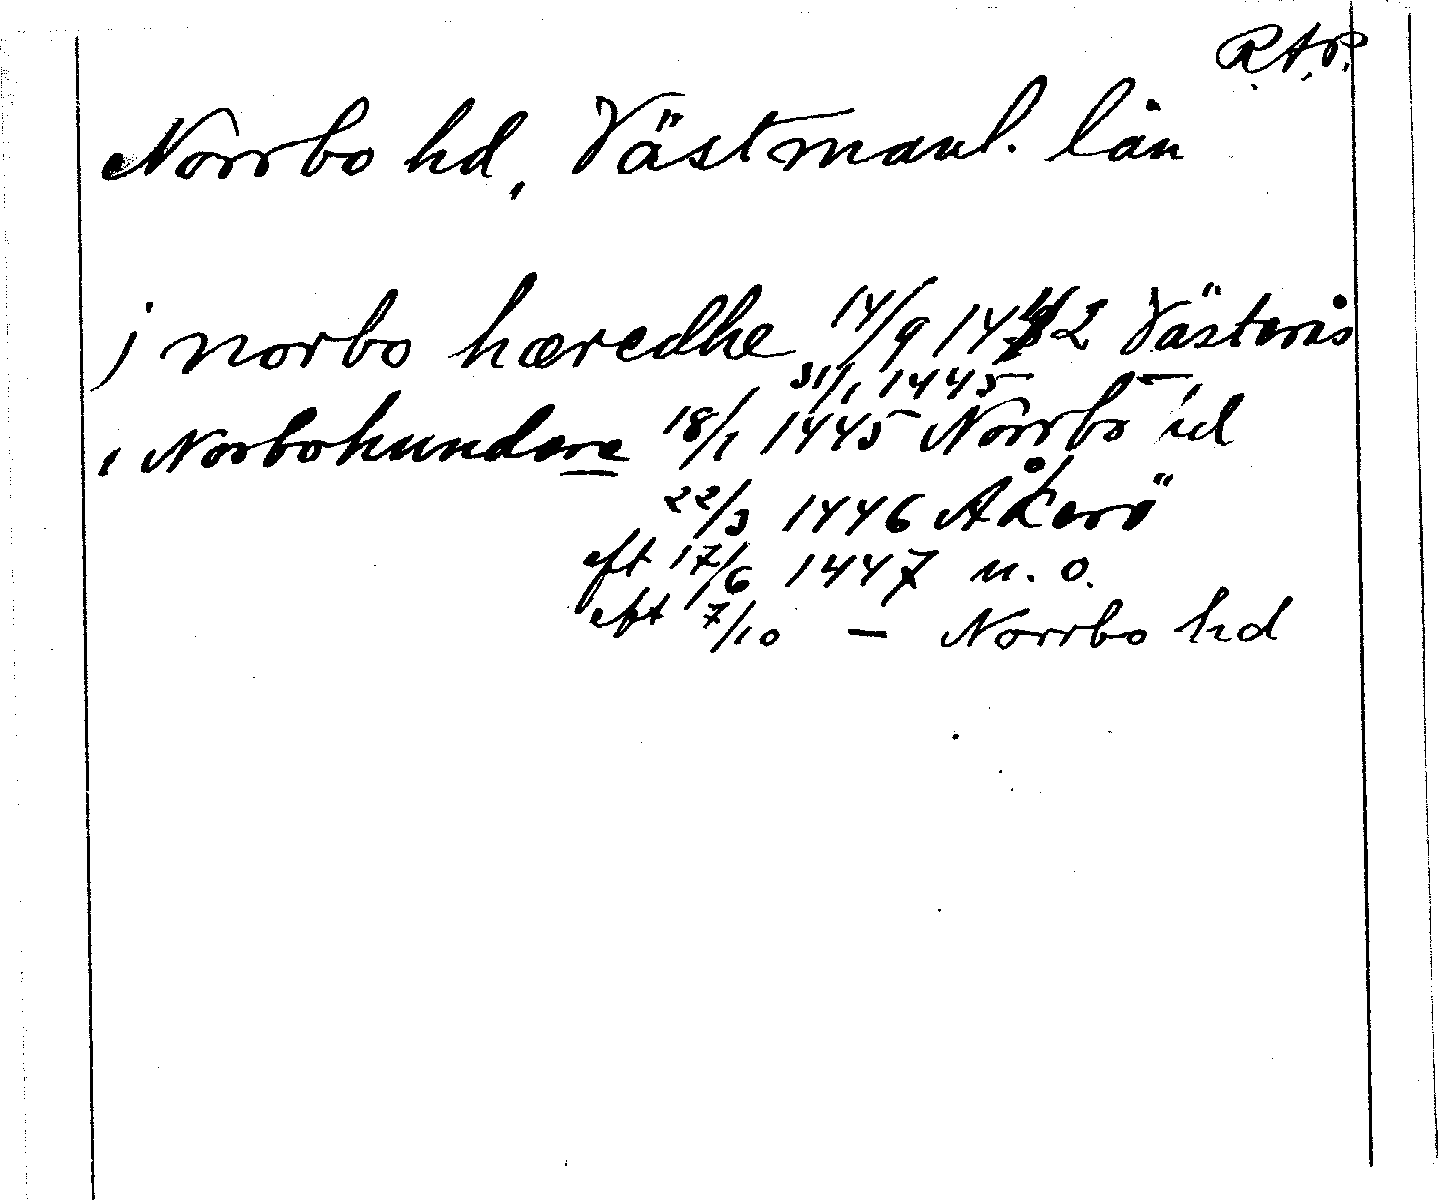 R.A.P.
Norrbo hd, Västmanl. län
j norbo hæredhe 14/9 1442 Västerås
31/1 1445 —
i Norbohundare 18/1 1445 Norrbo hd
22/3 1446 Åkerö
eft 17/6 1447 u. o.
eft 7/10 — Norrbo hd